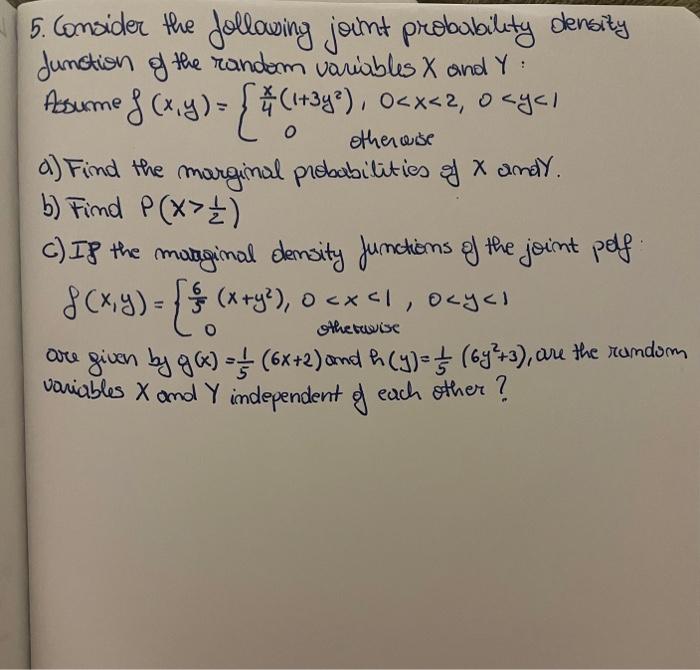 5. Consider the following joint probability density
function of the random variables X and Y :
Assume f(x,y) = { x/4 (1+3y²), 0<x<2, 0<y<1
0 otherwise
a) Find the marginal probabilities of X and Y.
b) Find P(X>1/2)
c) If the marginal density functions of the joint pdf:
f(x,y) = { 6/5 (x+y²), 0<x<1, 0<y<1
0 otherwise
are given by g(x) = 1/5 (6x+2) and h(y) = 1/5 (6y²+3), are the random
variables X and Y independent of each other?